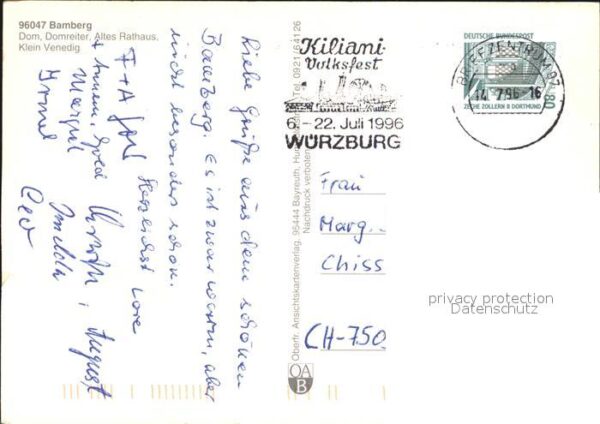 96047 Bamberg
Dom, Domreiter, Altes Rathaus,
Klein Venedig
Liebe Grüße aus dem schönen
Bamberg. Es ist zwar warm, aber
nicht besonders schön.
Herzlichst
Imelda
August
Oberfr. Ansichtskartenverlag, 95444 Bayreuth, Tel. 0921/64126
Nachdruck verboten
OA
B
Kiliani-
Volksfest
6.-22. Juli 1996
WÜRZBURG
DEUTSCHE BUNDESPOST
80
ZECHE ZOLLERN II DORTMUND
BRIEFZENTRUM 97
14.7.96-16
Frau
Marg..
Chiss
CH-750
privacy protection
Datenschutz